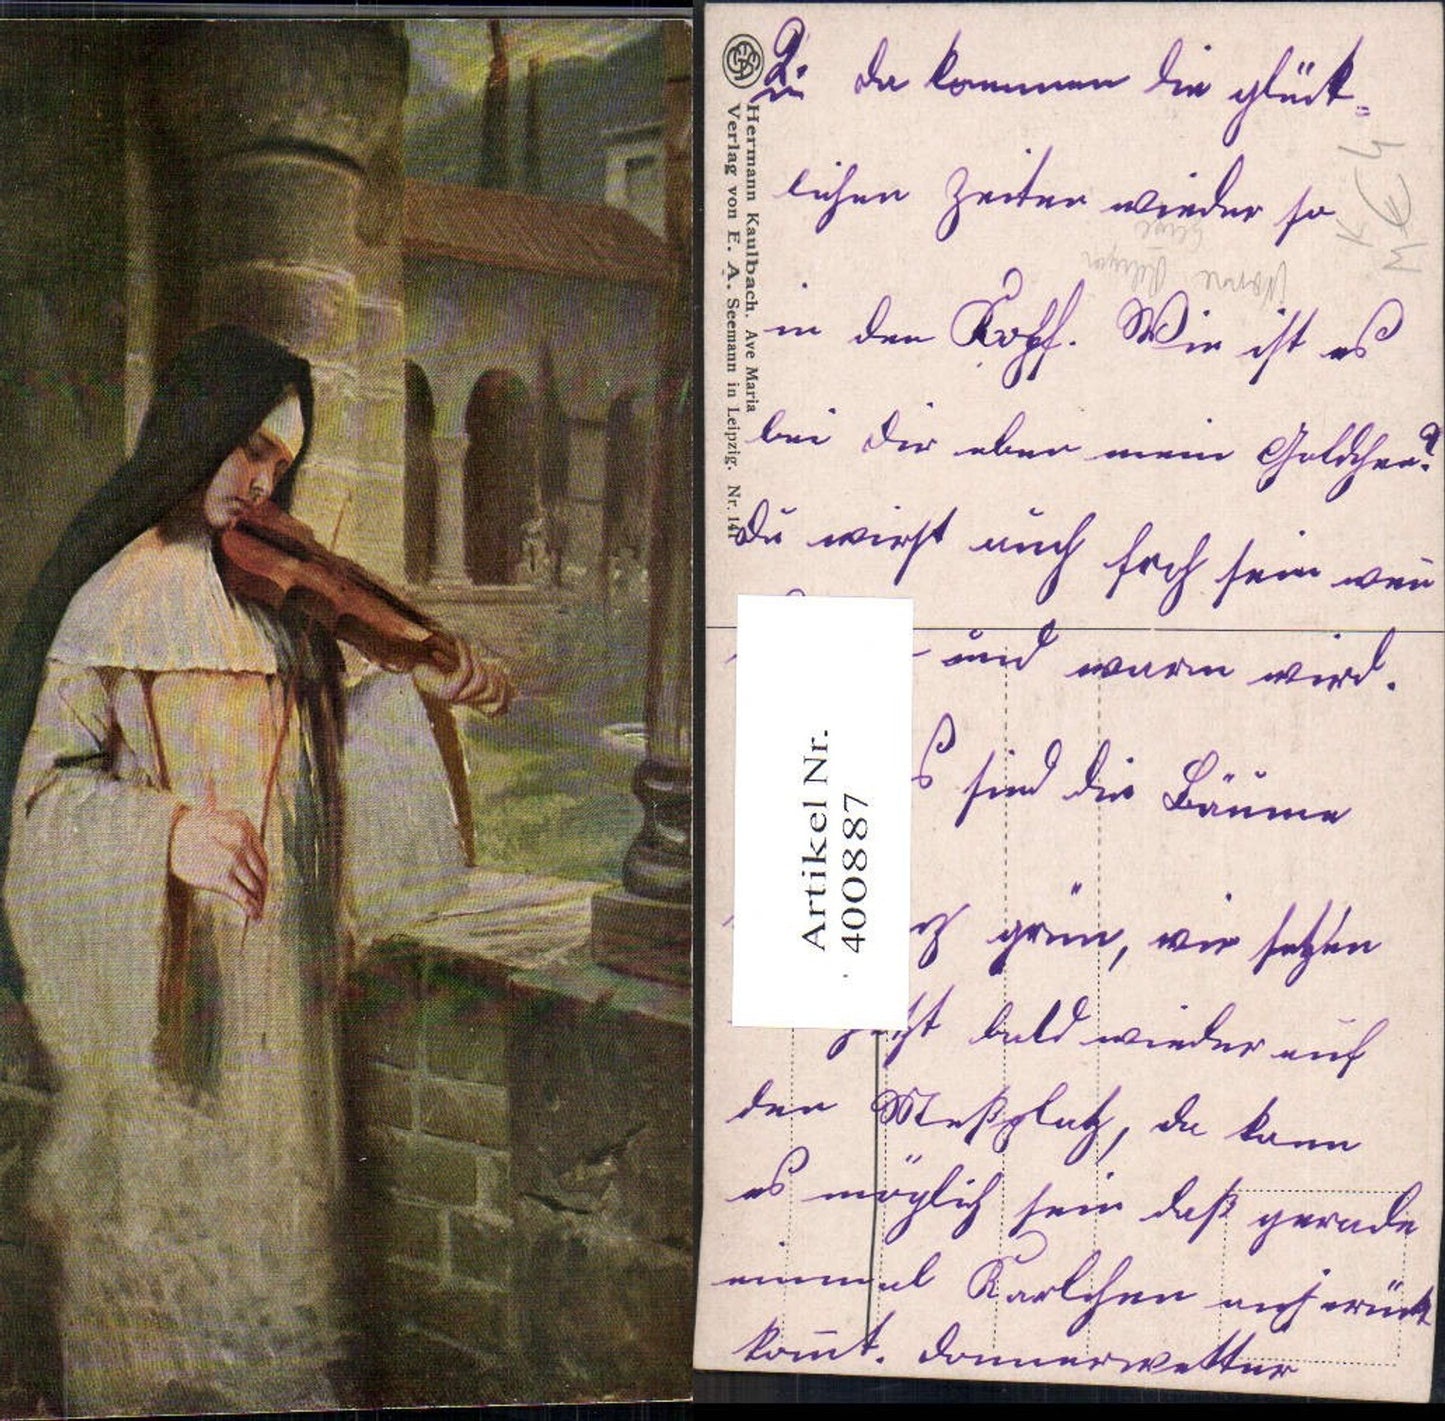 Hermann Kaulbach. Ave Maria
Verlag von E. A. Seemann in Leipzig. Nr. 141
da kommen die glück-
lichen Zeiten wieder so
in den Kopf. Wie ist es
bei Dir eben mein Goldchen?
Du wirst auch froh sein wen
und warm wird.
sind die Bäume
grün, wir setzen
bald wieder auf
den Meßplatz, da kann
es möglich sein daß gerade
einmal Karlchen
kom̅t. Donnerwetter
Artikel Nr.
400887